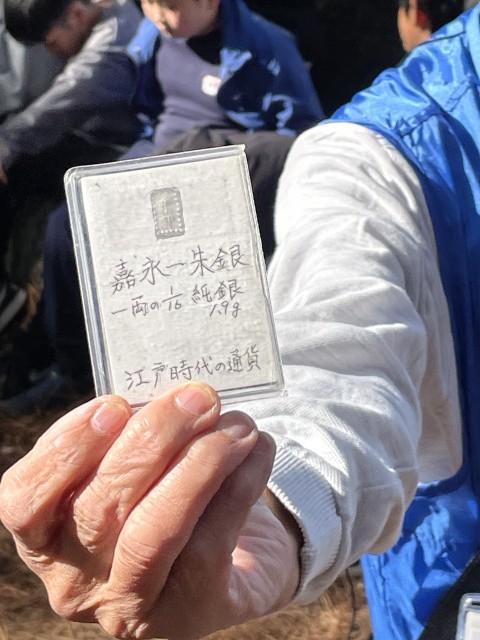 嘉永一朱銀
一両の1/16 純銀
1.9g
江戸時代の通貨